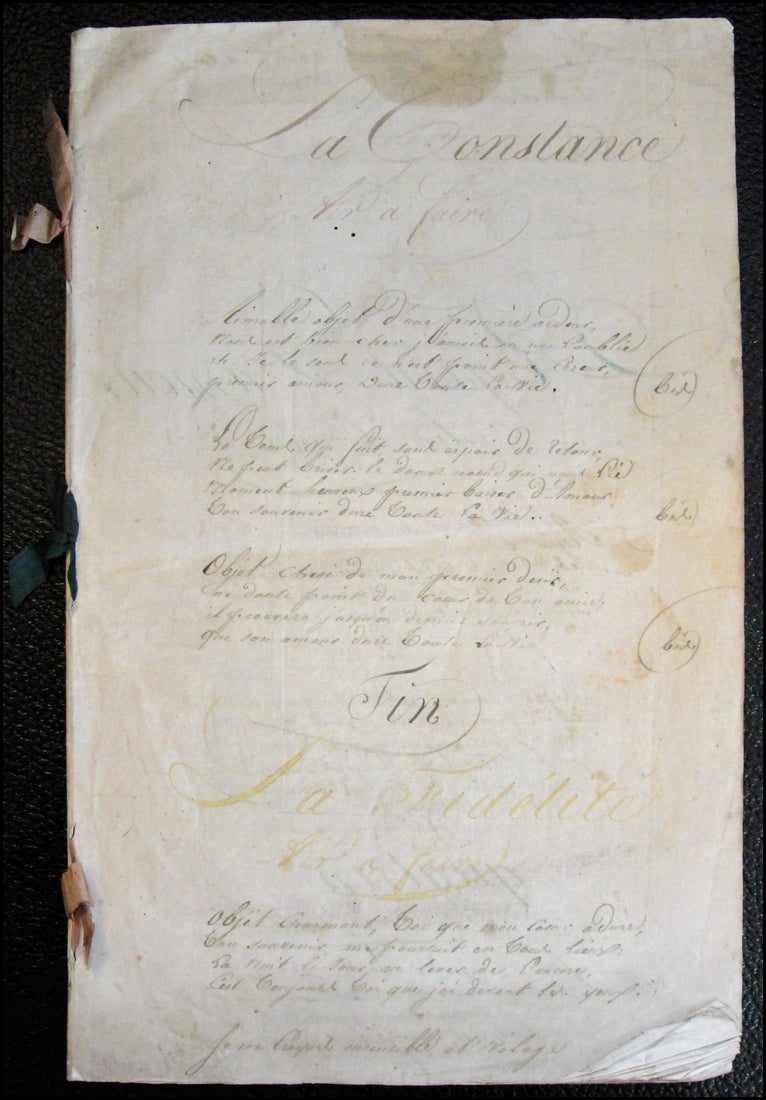 La Constance
Air à faire
objet d'une première ardeur,
est bien cher jamais on ne l'oublie
Je le sens ce n'est point une
premier amour, dure toute la vie.
bis
Le qui fuit, sans espoir de retour,
Ne peut briser le doux noeud qui nous lie
Moment heureux premier baiser d'Amour,
Ton souvenir dure toute la vie.
bis
Objet cheri de mon premier
ne doute point du coeur de ton amie,
il prouvera jusqu'au dernier
que son amour dure toute la vie
bis
Fin
La Fidélité
Air à faire
Objet charmant, toi que mon coeur adore,
Ton souvenir me poursuit en tout lieux:
La Nuit le Jour, au lever de l'aurore,
C'est toujours toi que j'ai devant les yeux.
Je me et volage